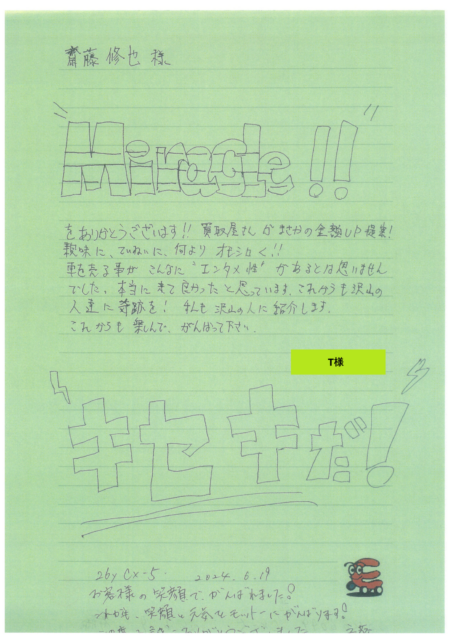 齋藤修也 様
Miracle!!
をありがとうございます!! 買取屋さんがまさかの金額UP提案!
親味に、ていねいに、何より オモシロく!!
車を売る事が こんなに "エンタメ性" があるとは思いません
でした。本当に来て良かったと思っています。これからも沢山の
人達に奇跡を! 私も沢山の人に紹介します。
これからも楽しんで、がんばって下さい。
T様
キセキだ!
by CX-5 2024.6.19
お客様の笑顔で、がんばれました!
笑顔 モットーにがんばります!